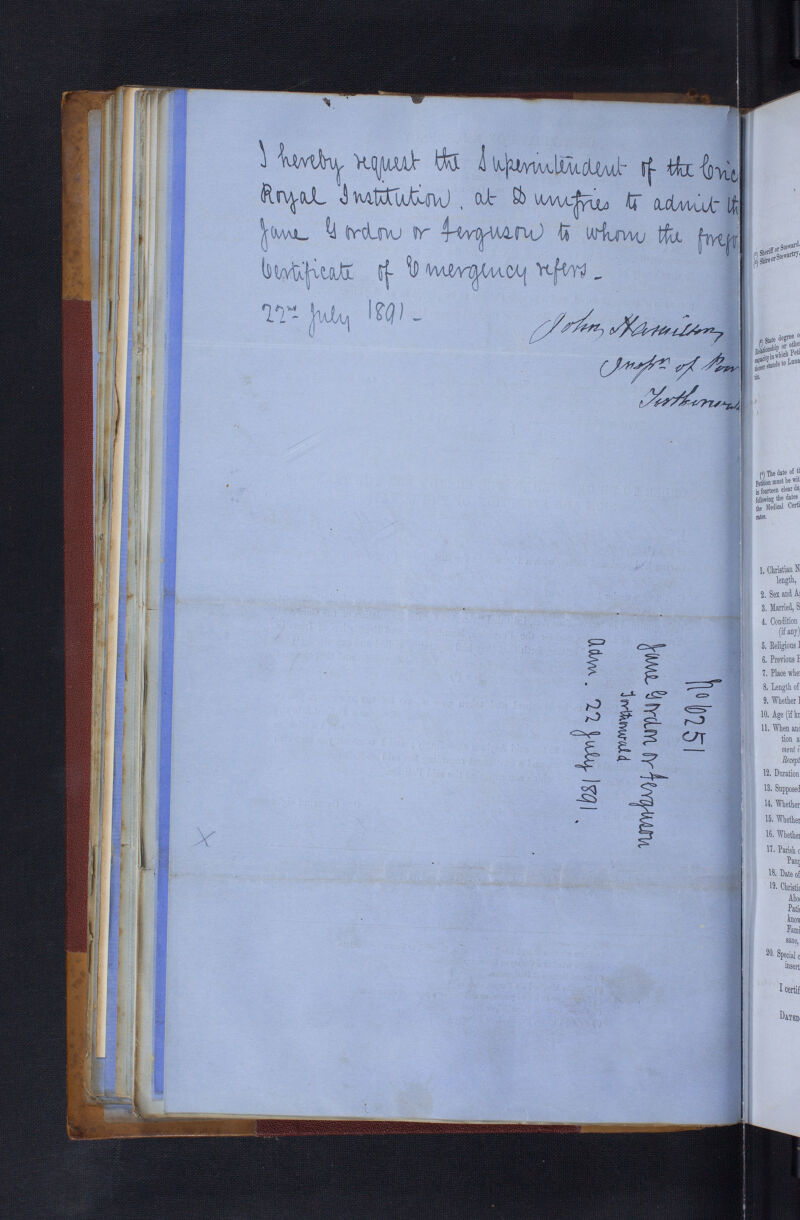 I hereby request the Superintendent of the Cric
Royal Institution, at Dumfries to admit th
Jane Gordon or Ferguson to whom the forego
Certificate of Emergency refers_
22nd July 1891_
John Hamilton
Inspr of Poor
Torthorwald
No 6251
Jane Gordon or Ferguson
Torthorwald
adm. 22 July 1891.
X
(1) Sheriff or Steward.
(2) Shire or Stewartry.
(3) State degree o
Relationship or othe
capacity in which Peti
tioner stands to Luna
tic.
(4) The date of th
Petition must be wit
in fourteen clear da
following the dates
the Medical Certi
cates.
1. Christian N
length,
2. Sex and A
3. Married, S
4. Condition
(if any)
5. Religious
6. Previous
7. Place whe
8. Length of
9. Whether
10. Age (if k
11. When an
tion a
ment i
Recept
12. Duration
13. Supposed
14. Whether
15. Whether
16. Whether
17. Parish
18. Date of
19. Christi
Abo
Pati
know
Fami
sane,
20. Special
insert
I certif
DATED